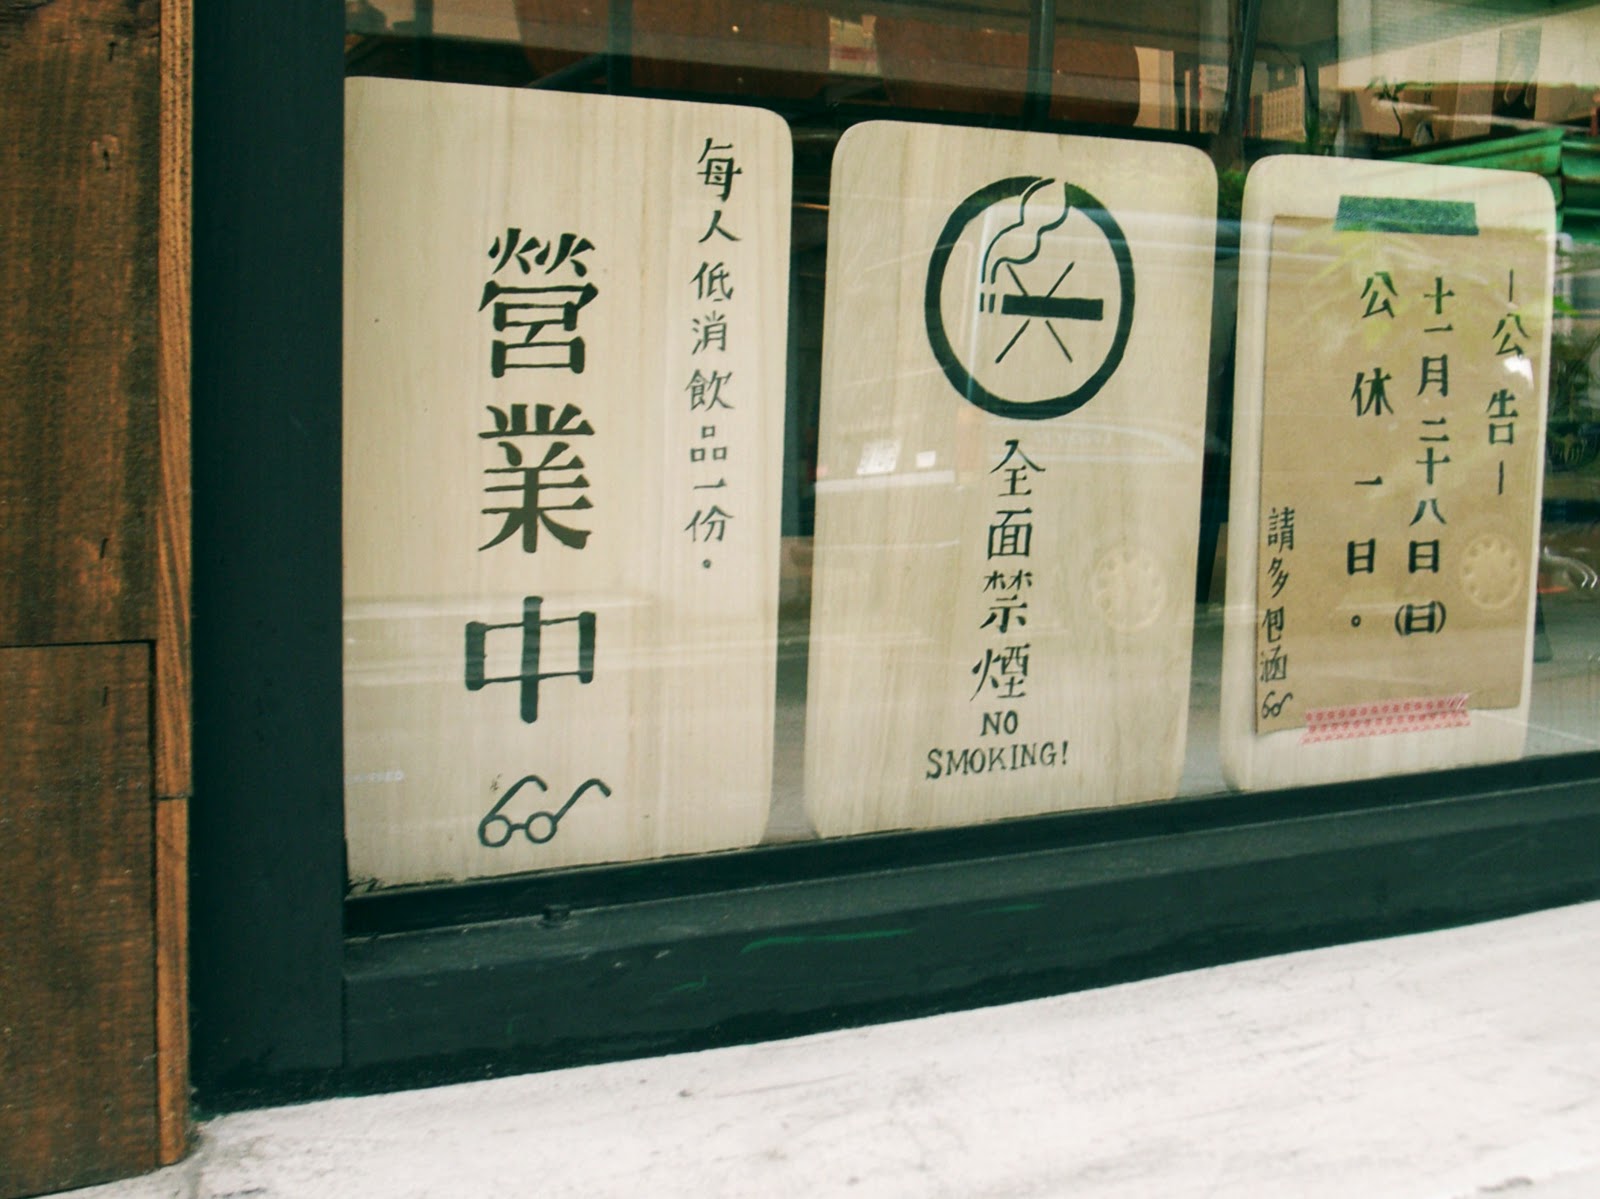 每人低消飲品一份。
營業中
全面禁煙
NO
SMOKING!
－公告－
十一月二十八日(日)
公休一日。
請多包涵